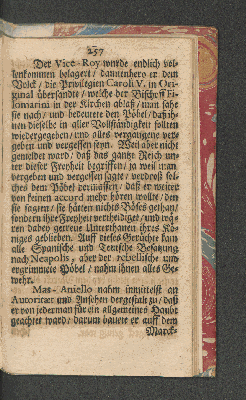 257
Der Vice-Roy wurde endlich vol-
lenkommen belagert / dannenhero er dem
Volck / die Privilegien Caroli V. in Ori-
ginal übersandte / welche der Bischoff Fi-
lomarini in der Kirchen ablaß / man sahe
sie nach / und bedeutete den Pöbel / daß ih-
nen dieselbe in aller Vollständigkeit solten
wiedergegeben / und alles vergangene verge-
geben und vergessen seyn. Weil aber nicht
gemeldet ward / daß das gantze Reich un-
ter dieser Freyheit begriffen / ja weil man
vergeben und vergessen sagte / verdroß sol-
ches dem Pöbel dermassen / daß er weiter
von keinen accord mehr hören wolte / den
sie sagten / sie hätten nichts Böses gethan /
sondern ihre Freyheit vertheidiget / und wä-
ren dabey getreue Unterthanen ihres Kö-
niges geblieben. Auff dieses Gerüchte kam
alle Spanische und Teutsche Besatzung
nach Neapolis / aber der rebellische und
ergrimmete Pöbel / nahm ihnen alles Ge-
wehr.
Mas-Aniello nahm inmittelst an
Autorität und Ansehen dergestalt zu / daß
er von jederman für ein allgemeines Haupt
geachtet ward / darum bauete er auff dem
Marck-